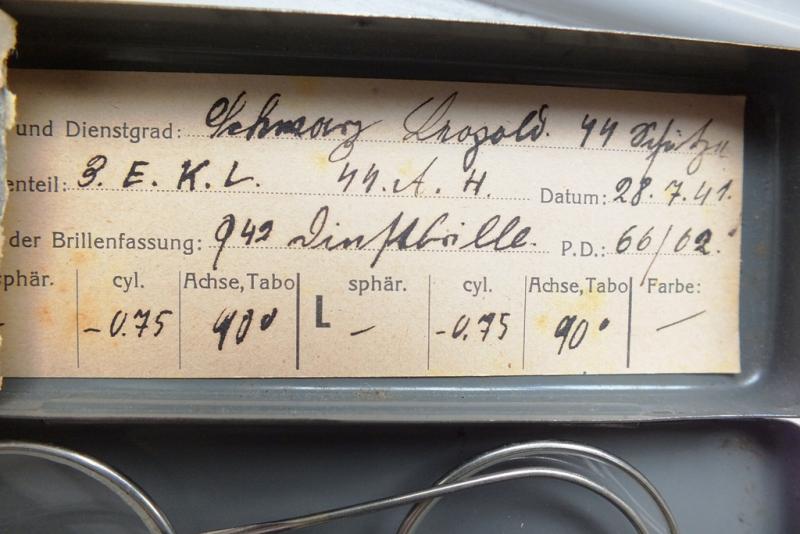 und Dienstgrad: Schwarz Leopold. ᛋᛋ Schütze
enteil: 3. E. K. L. ᛋᛋ. A. H. Datum: 28. 7. 41.
der Brillenfassung: 942 Dienstbrille. P.D.: 66/62.
sphär. cyl. Achse, Tabo L sphär. cyl. Achse, Tabo Farbe:
– -0.75 90° – -0.75 90° –